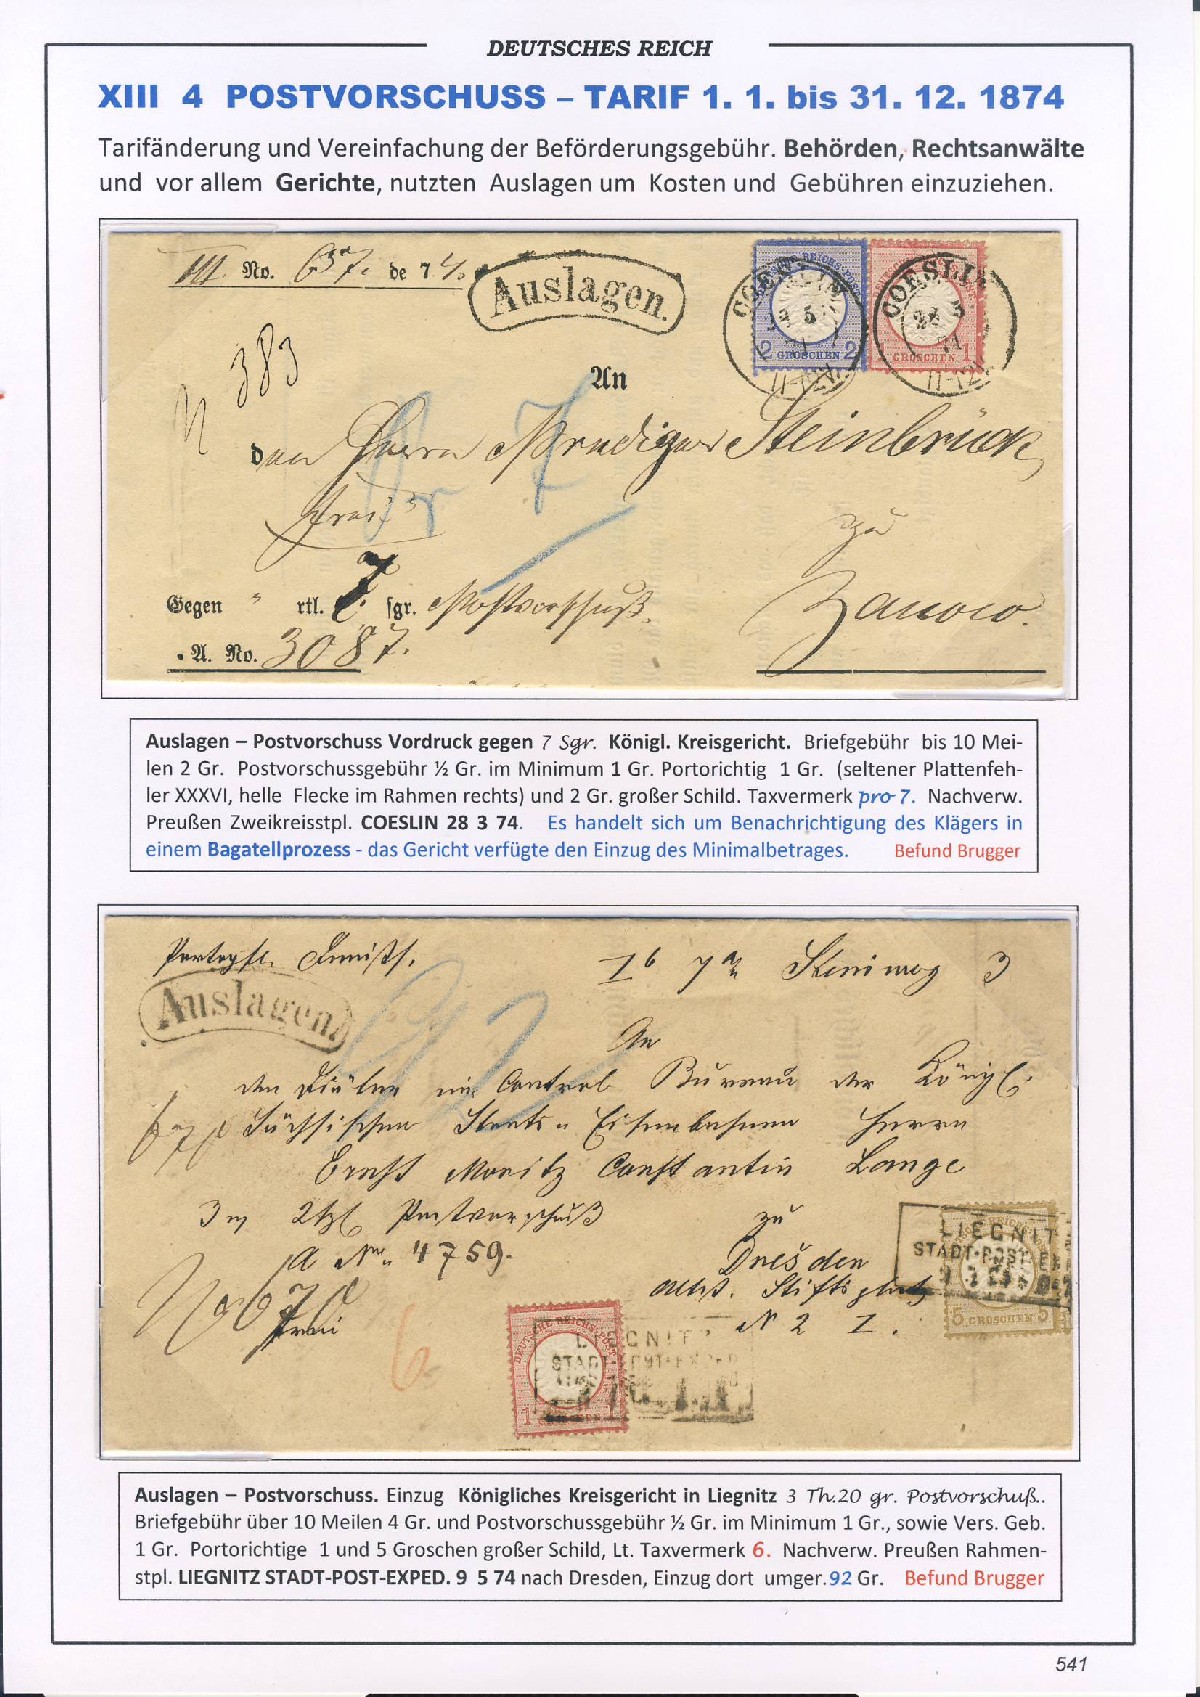 DEUTSCHES REICH
XIII 4 POSTVORSCHUSS – TARIF 1. 1. bis 31. 12. 1874
Tarifänderung und Vereinfachung der Beförderungsgebühr. Behörden, Rechtsanwälte
und vor allem Gerichte, nutzten Auslagen um Kosten und Gebühren einzuziehen.
III. No. 637. de 74.
Auslagen.
COESLIN
COESLIN
2 GROSCHEN 2
1 GROSCHEN 1
N 383
An
den Herrn Prediger Steinbrück
frei
pr 7
zu
Zanow.
Gegen " rtl. 7 sgr. Postvorschuß.
A. No. 3087.
Auslagen – Postvorschuss Vordruck gegen 7 Sgr. Königl. Kreisgericht. Briefgebühr bis 10 Mei-
len 2 Gr. Postvorschussgebühr ½ Gr. im Minimum 1 Gr. Portorichtig 1 Gr. (seltener Plattenfeh-
ler XXXVI, helle Flecke im Rahmen rechts) und 2 Gr. großer Schild. Taxvermerk pro 7. Nachverw.
Preußen Zweikreisstpl. COESLIN 28 3 74. Es handelt sich um Benachrichtigung des Klägers in
einem Bagatellprozess - das Gericht verfügte den Einzug des Minimalbetrages. Befund Brugger
Auslagen.
92
An
den im Central Bureau der Königl.
Sächsischen Staats Eisenbahnen Herrn
Ernst Moritz Constantin Lange
3 Postvorschuß zu
A No 4759. Dresden
N 2 I.
frei
6
LIEGNITZ
STADT-POST-EXPED
5 GROSCHEN 5
LIEGNITZ
STADT-POST-EXPED
Auslagen – Postvorschuss. Einzug Königliches Kreisgericht in Liegnitz 3 Th.20 gr. Postvorschuß..
Briefgebühr über 10 Meilen 4 Gr. und Postvorschussgebühr ½ Gr. im Minimum 1 Gr., sowie Vers. Geb.
1 Gr. Portorichtige 1 und 5 Groschen großer Schild, Lt. Taxvermerk 6. Nachverw. Preußen Rahmen-
stpl. LIEGNITZ STADT-POST-EXPED. 9 5 74 nach Dresden, Einzug dort umger.92 Gr. Befund Brugger
541